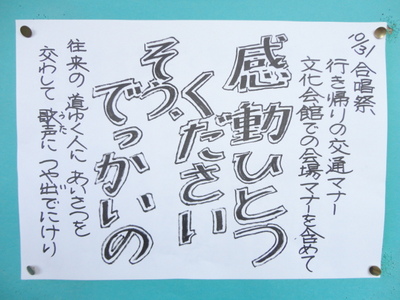 10/31 合唱祭
行き帰りの交通マナー
文化会館での会場マナーを含めて
感動ひとつ
ください
そう、
でっかいの
往来の 道ゆく人に あいさつを
交わして 歌声に つや出でにけり
うた